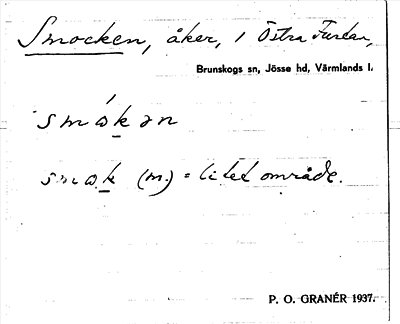 Smocken, åker, i Östra Furtan,
Brunskogs sn, Jösse hd, Värmlands l.
smɷ́kən
smɷk (m.) = litet område.
P. O. GRANÉR 1937.